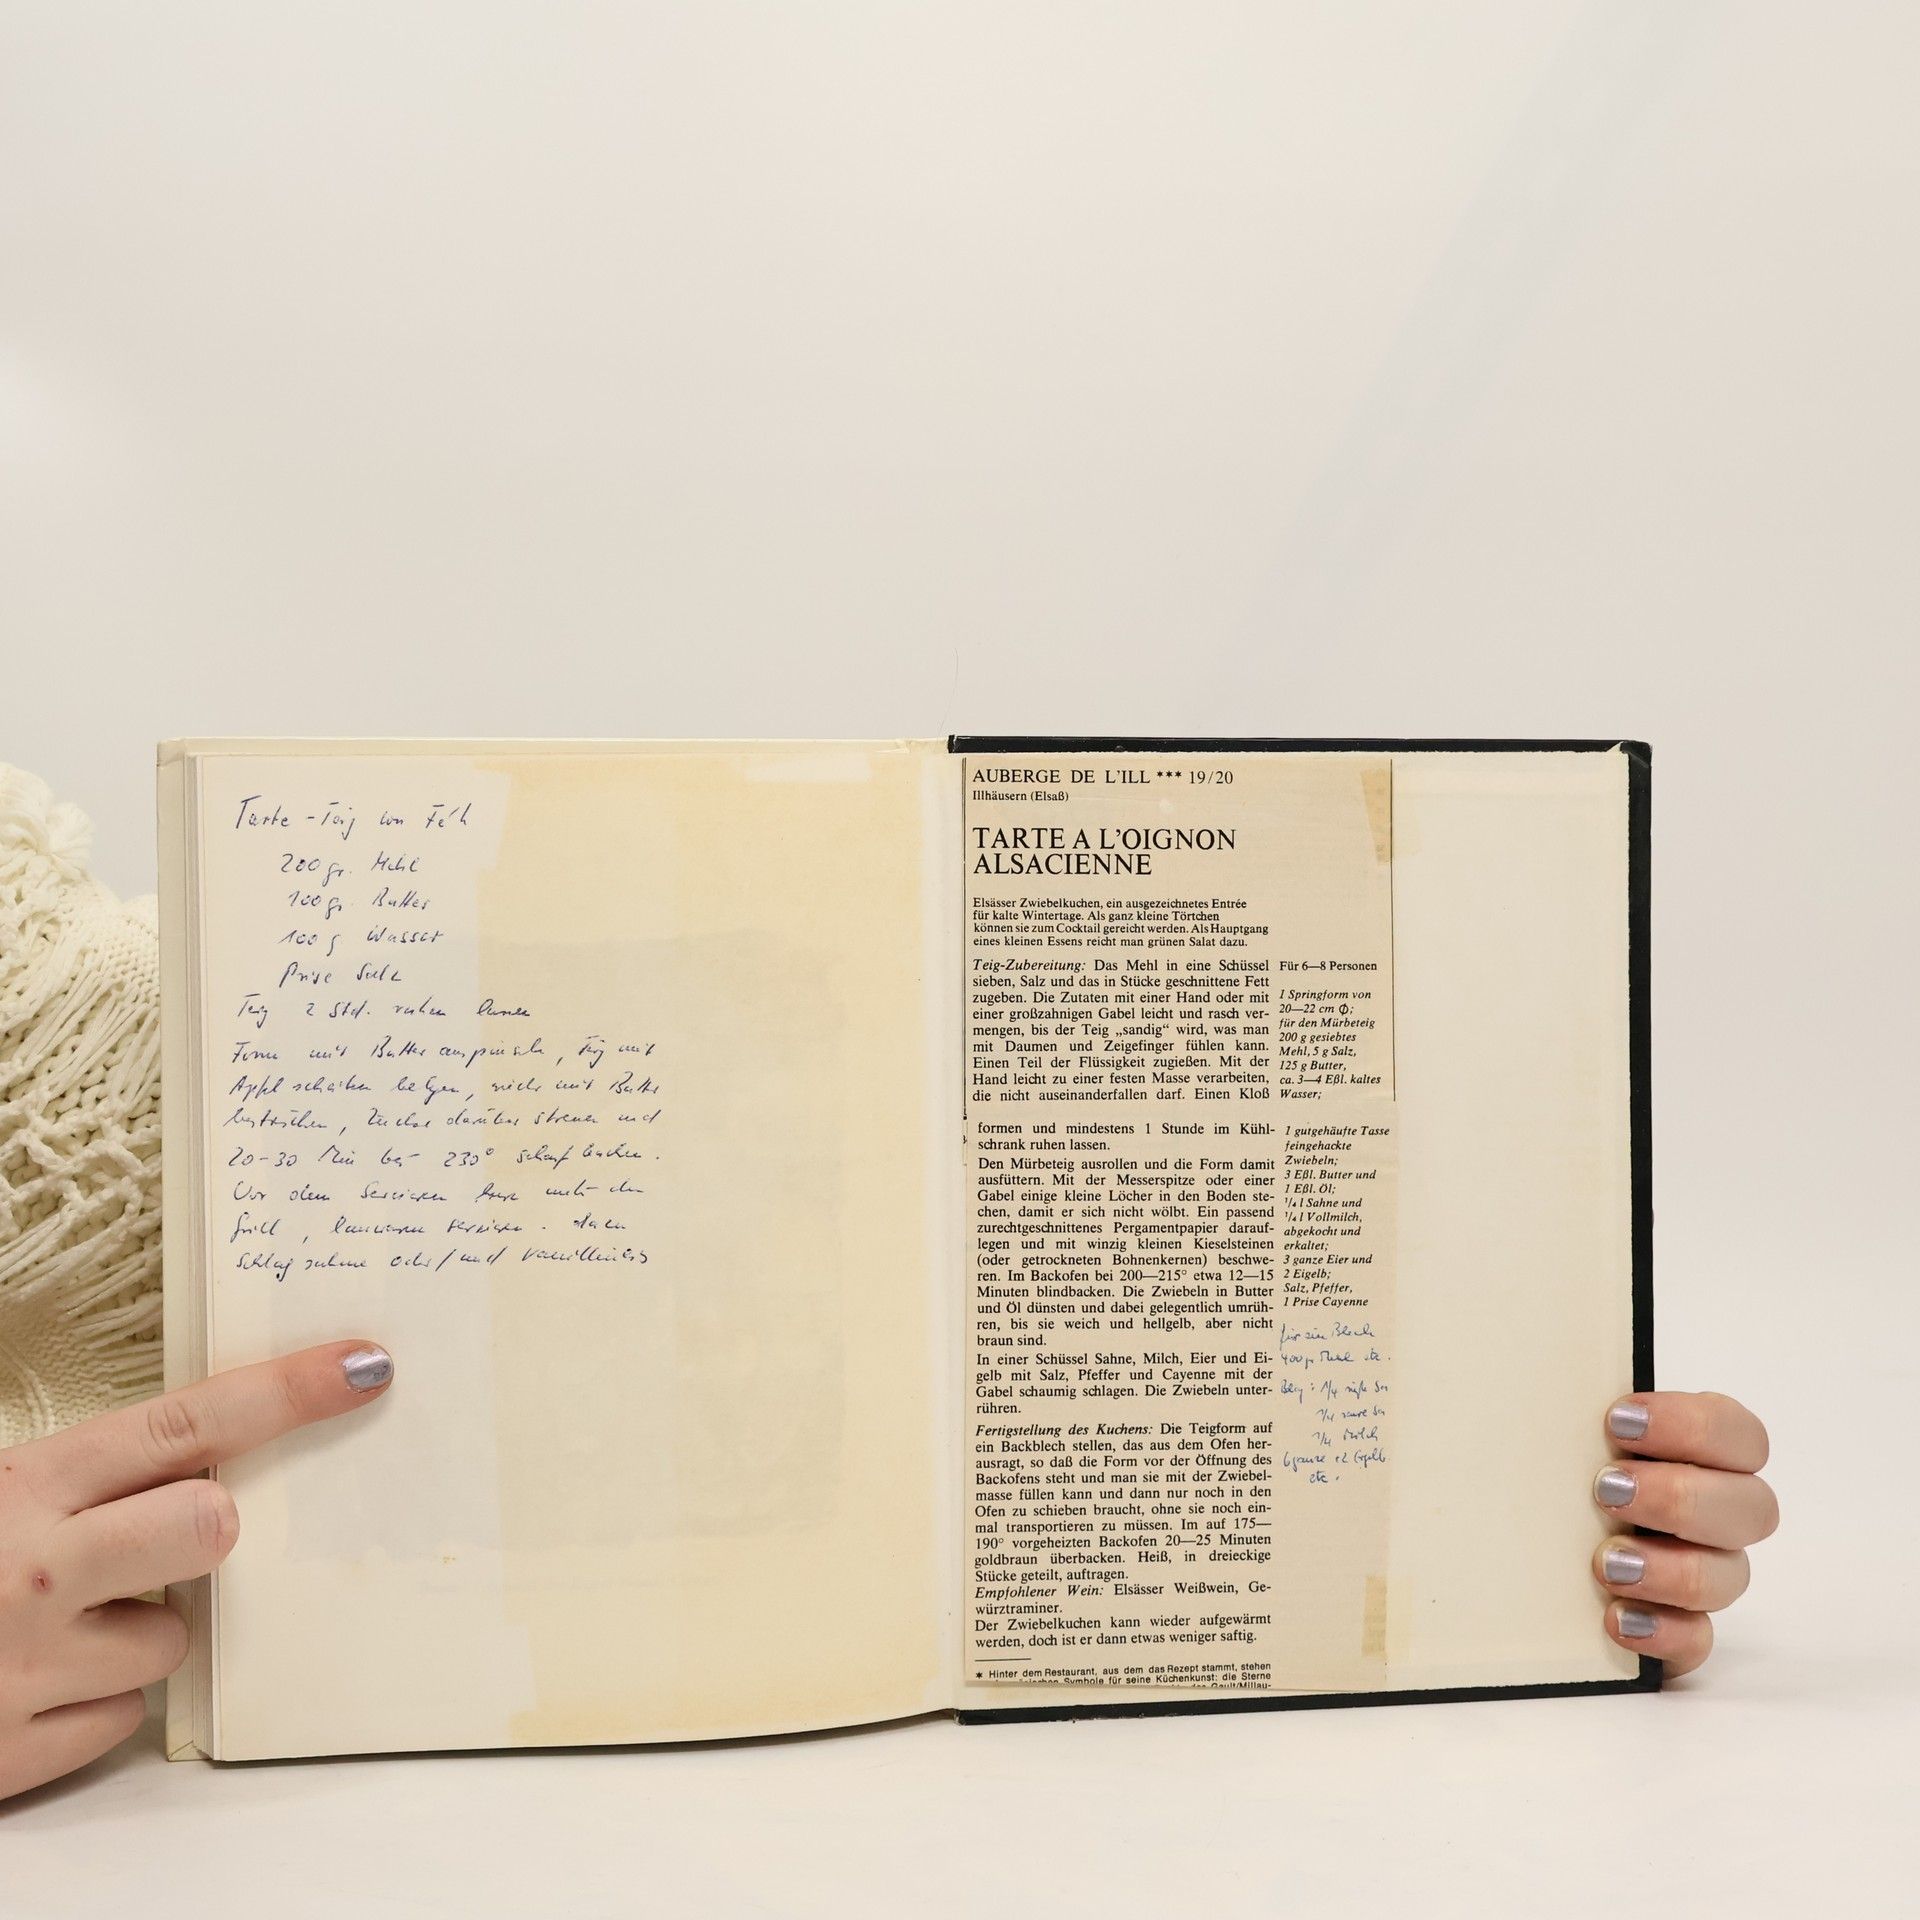 Tarte - Teig von
200 gr. Mehl
100 gr. Butter
100 g Wasser
Prise Salz
Teig 2 Std. ruhen lassen
Form mit Butter auspinseln, Teig mit
Apfelscheiben belegen, mit Butter
bestreichen, Zucker darüber streuen und
20-30 Min bei 230° scharf backen.
Vor dem Servieren kurz unter den
Grill, lauwarm servieren. dazu
Schlagsahne oder/und Vanilleeis
AUBERGE DE L'ILL *** 19/20
Illhäusern (Elsaß)
TARTE A L'OIGNON
ALSACIENNE
Elsässer Zwiebelkuchen, ein ausgezeichnetes Entrée
für kalte Wintertage. Als ganz kleine Törtchen
können sie zum Cocktail gereicht werden. Als Hauptgang
eines kleinen Essens reicht man grünen Salat dazu.
Teig-Zubereitung: Das Mehl in eine Schüssel
sieben, Salz und das in Stücke geschnittene Fett
zugeben. Die Zutaten mit einer Hand oder mit
einer großzahnigen Gabel leicht und rasch ver-
mengen, bis der Teig „sandig“ wird, was man
mit Daumen und Zeigefinger fühlen kann.
Einen Teil der Flüssigkeit zugießen. Mit der
Hand leicht zu einer festen Masse verarbeiten,
die nicht auseinanderfallen darf. Einen Kloß
formen und mindestens 1 Stunde im Kühl-
schrank ruhen lassen.
Den Mürbeteig ausrollen und die Form damit
ausfüttern. Mit der Messerspitze oder einer
Gabel einige kleine Löcher in den Boden ste-
chen, damit er sich nicht wölbt. Ein passend
zurechtgeschnittenes Pergamentpapier darauf-
legen und mit winzig kleinen Kieselsteinen
(oder getrockneten Bohnenkernen) beschwe-
ren. Im Backofen bei 200—215° etwa 12—15
Minuten blindbacken. Die Zwiebeln in Butter
und Öl dünsten und dabei gelegentlich umrüh-
ren, bis sie weich und hellgelb, aber nicht
braun sind.
In einer Schüssel Sahne, Milch, Eier und Ei-
gelb mit Salz, Pfeffer und Cayenne mit der
Gabel schaumig schlagen. Die Zwiebeln unter-
rühren.
Fertigstellung des Kuchens: Die Teigform auf
ein Backblech stellen, das aus dem Ofen her-
ausragt, so daß die Form vor der Öffnung des
Backofens steht und man sie mit der Zwiebel-
masse füllen kann und dann nur noch in den
Ofen zu schieben braucht, ohne sie noch ein-
mal transportieren zu müssen. Im auf 175—
190° vorgeheizten Backofen 20—25 Minuten
goldbraun überbacken. Heiß, in dreieckige
Stücke geteilt, auftragen.
Empfohlener Wein: Elsässer Weißwein, Ge-
würztraminer.
Der Zwiebelkuchen kann wieder aufgewärmt
werden, doch ist er dann etwas weniger saftig.
* Hinter dem Restaurant, aus dem das Rezept stammt, stehen
Symbole für seine Küchenkunst: die Sterne
Gault/Millau-
Für 6—8 Personen
1 Springform von
20—22 cm Φ;
für den Mürbeteig
200 g gesiebtes
Mehl, 5 g Salz,
125 g Butter,
ca. 3—4 Eßl. kaltes
Wasser;
1 gutgehäufte Tasse
feingehackte
Zwiebeln;
3 Eßl. Butter und
1 Eßl. Öl;
¼ l Sahne und
¼ l Vollmilch,
abgekocht und
erkaltet;
3 ganze Eier und
2 Eigelb;
Salz, Pfeffer,
1 Prise Cayenne
für ein Blech
400 gr Mehl etc.
1/4 süße Sa
1/4 saure Sa
1/4 Milch
6 ganze +2 Eigelb
etc.